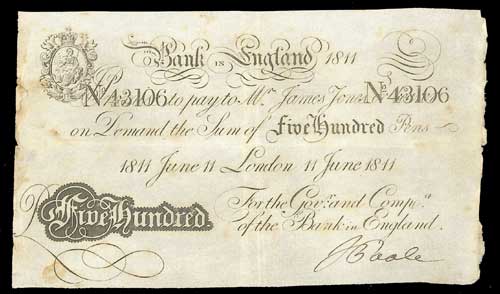 Bank in England 1811
No 43106 to pay to Mr. James Jones No 43106
on Demand the Sum of Five Hundred Pens
1811 June 11 London 11 June 1811
For the Govr. and Compa.
Five Hundred of the Bank in England.
J Poole